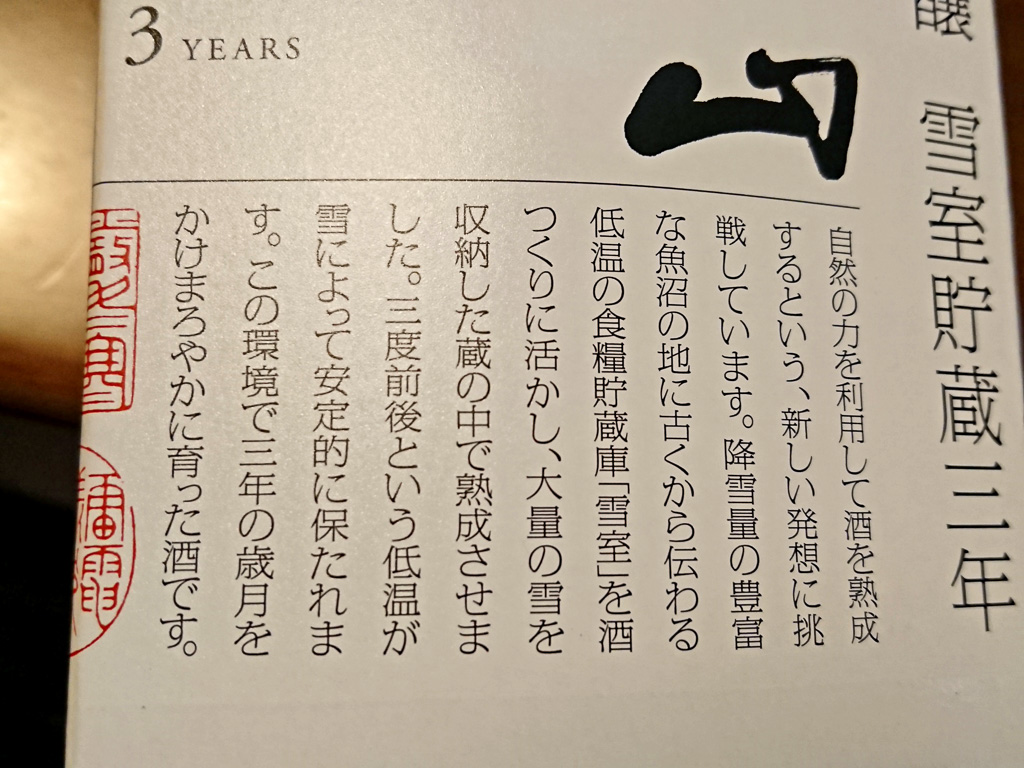 醸 雪室貯蔵三年
山
3 YEARS
自然の力を利用して酒を熟成
するという、新しい発想に挑
戦しています。降雪量の豊富
な魚沼の地に古くから伝わる
低温の食糧貯蔵庫「雪室」を酒
つくりに活かし、大量の雪を
収納した蔵の中で熟成させま
した。三度前後という低温が
雪によって安定的に保たれま
す。この環境で三年の歳月を
かけまろやかに育った酒です。